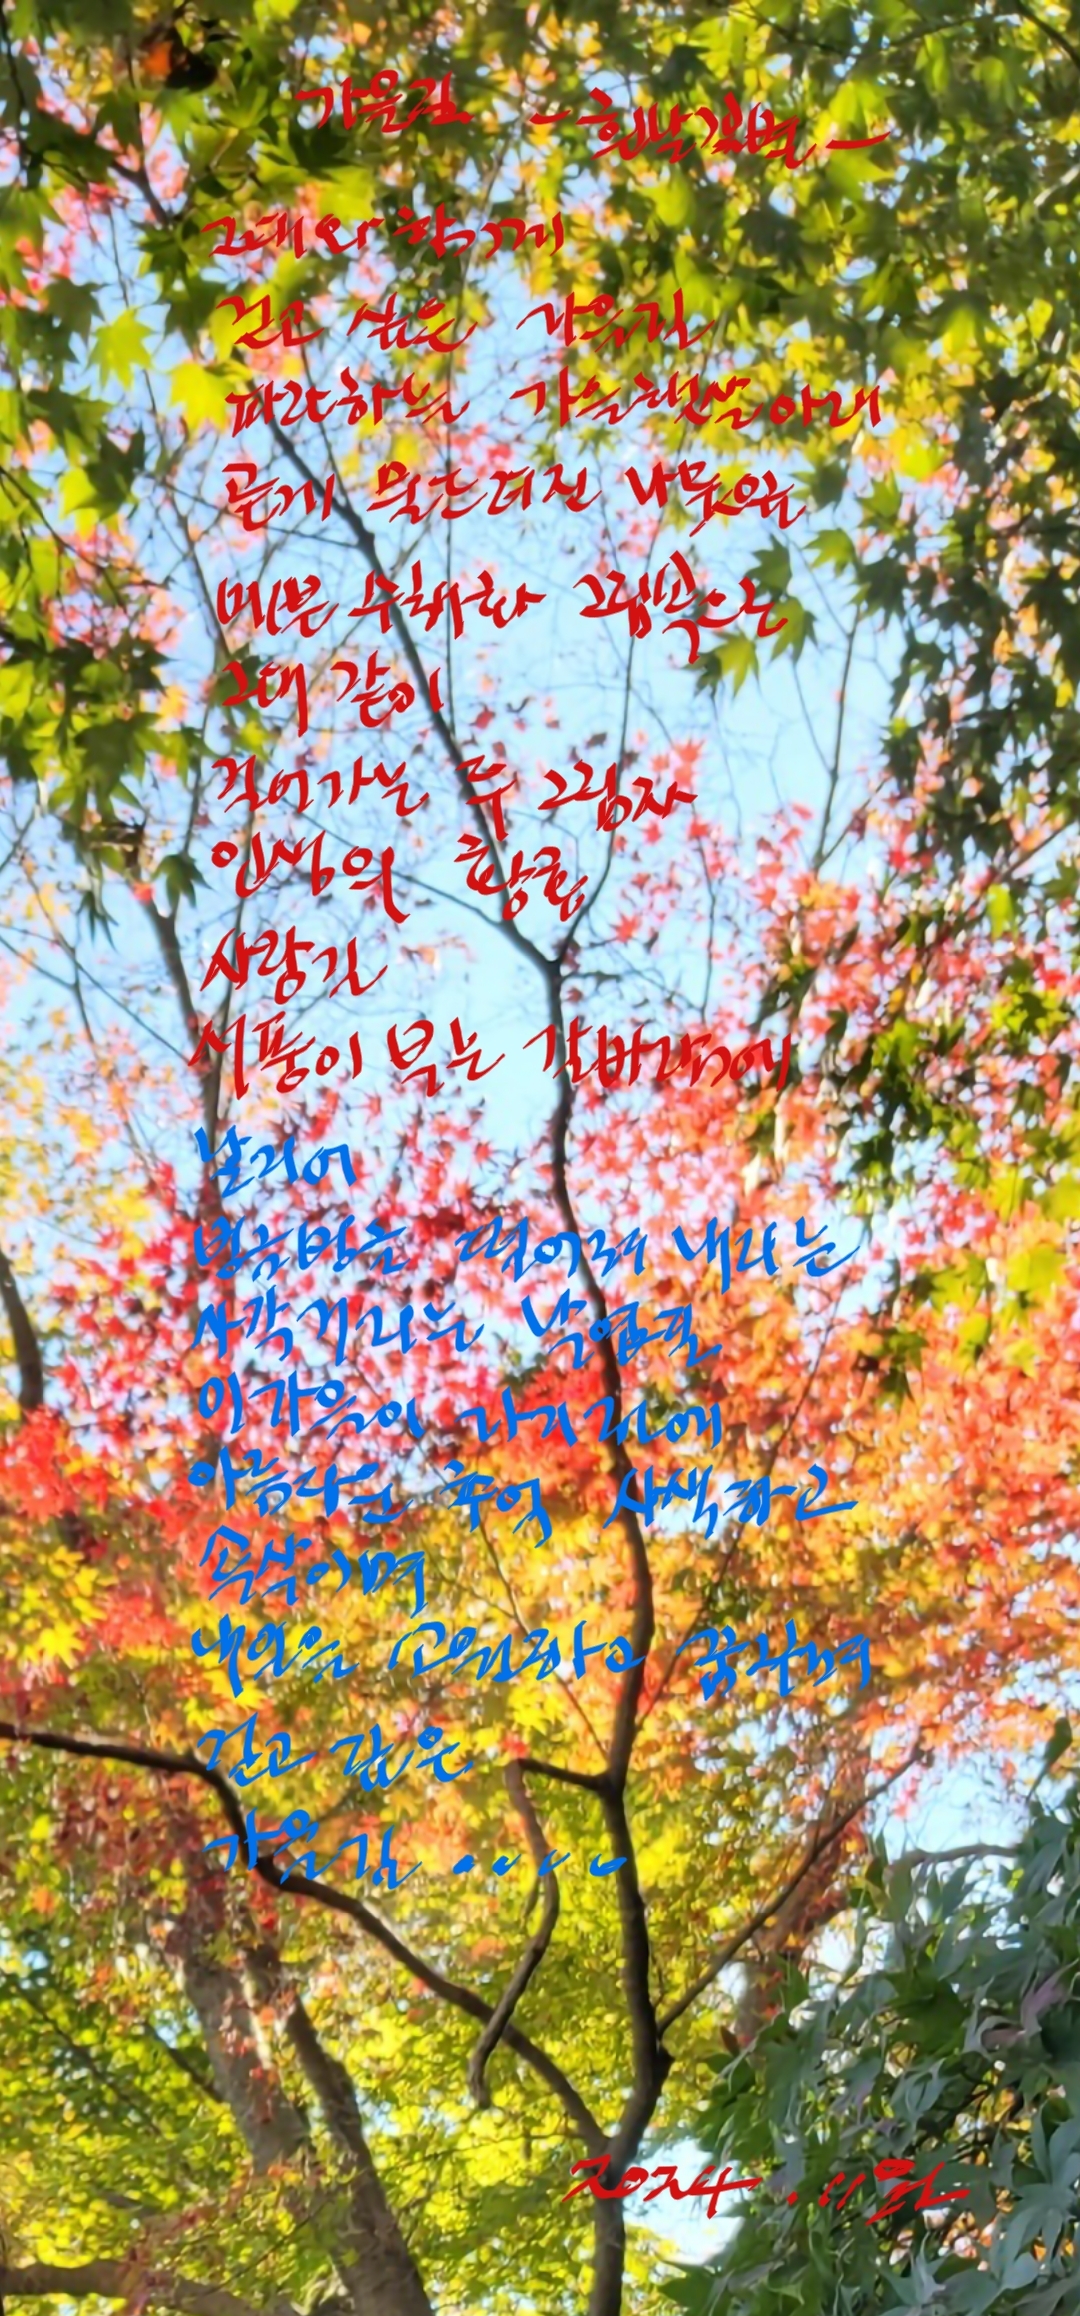 가을길
그대와 함께
걷고 싶은 가을길
파라하는 가을햇살 아래
곱게 물드려진 나뭇잎
예쁜 수채화 그림속으로
그대 같이
걸어가는 두 그림자
인생의 황혼
사랑길
서풍이 부는 갈바람에
날리어
빙글빙글 떨어져 내리는
사각거리는 낙엽길
이가을이 다가기전에
아름다운 추억 사색하고
속삭이며
내일을 소원하고 꿈꾸며
걷고 싶은
가을길 . . . .
2024 . 11월